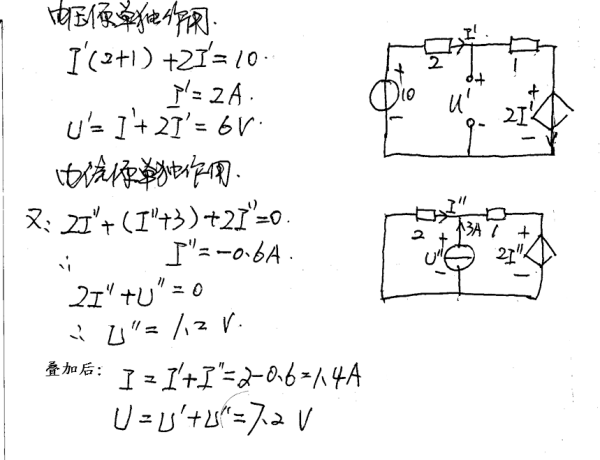 电压源单独作用.
I'(2+1)+2I'=10.
I'=2A.
U'=I'+2I'=6V.
电流源单独作用.
又: 2I"+(I"+3)+2I"=0.
∴ I"=-0.6A.
2I"+U"=0
∴ U"=1.2 V.
叠加后: I=I'+I"=2-0.6=1.4A
U=U'+U"=7.2 V
I'
2
1
+
10
-
+
U'
-
+
2I'
-
I"
2
3A
1
+
U"
-
+
2I"
-